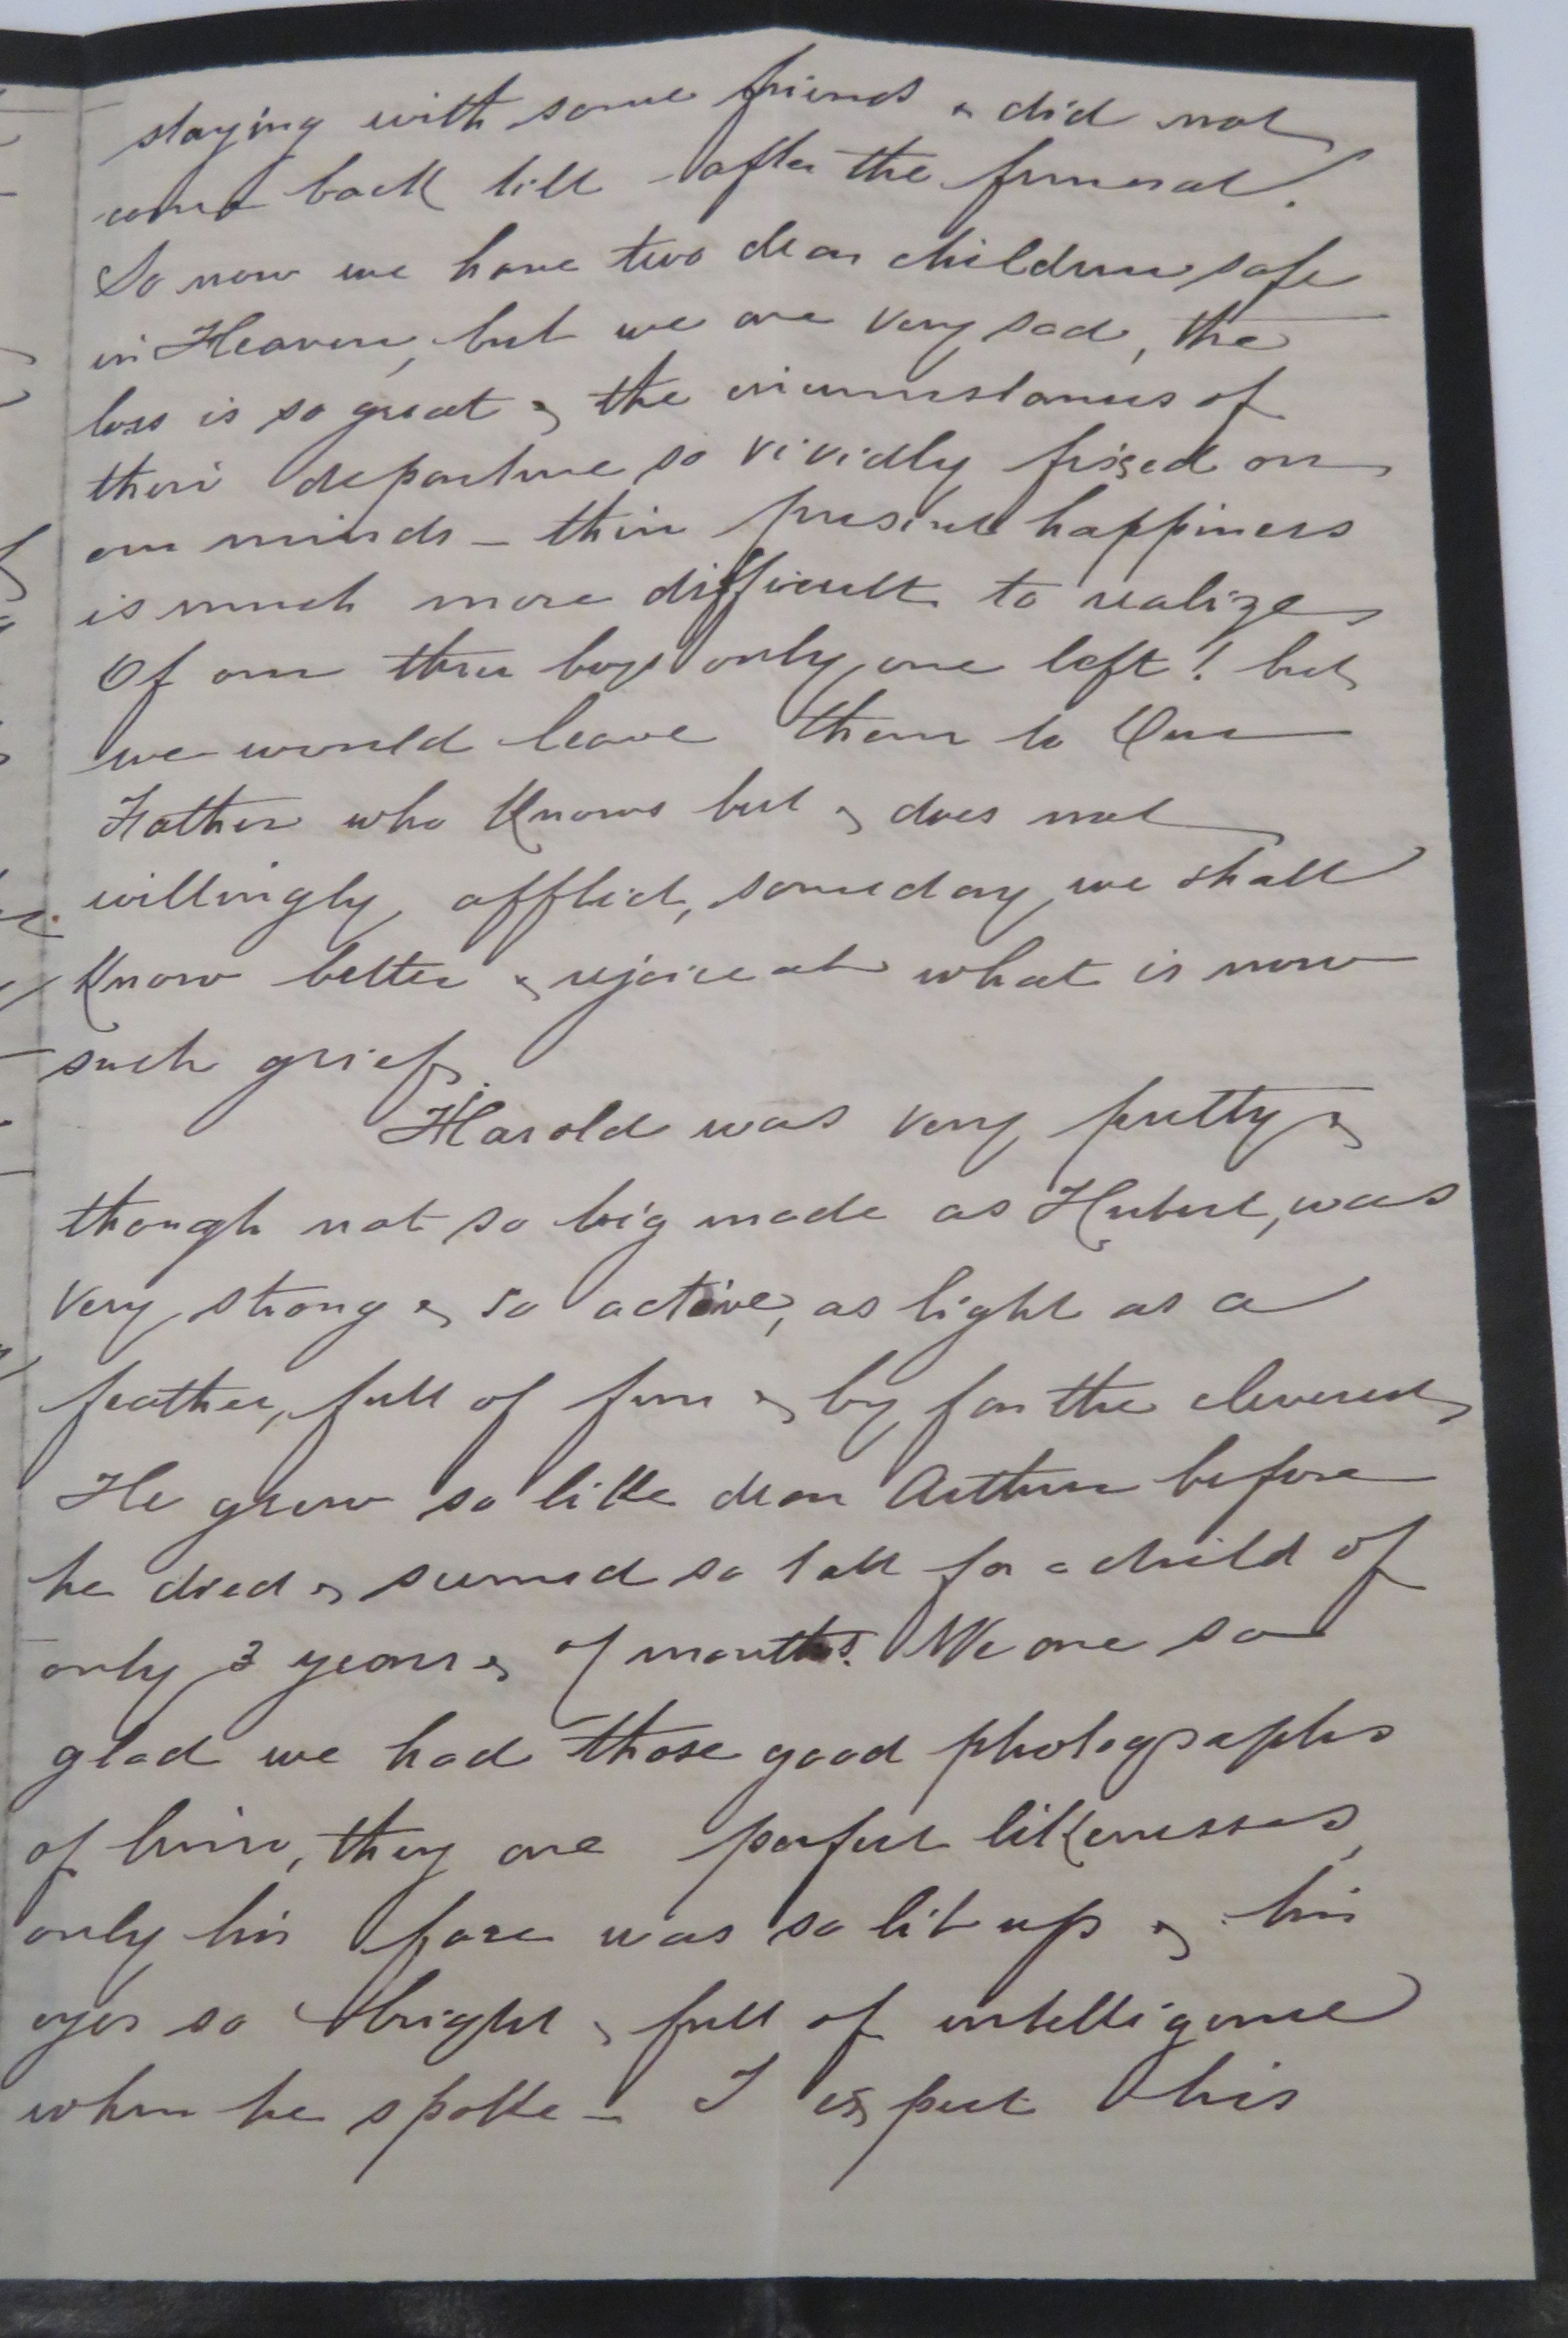 staying with some friends & did not
come back till after the funeral.
So now we have two dear children safe
in Heaven, but we are very sad, the
loss is so great & the circumstances of
their departure so vividly fixed on
our minds – their present happiness
is much more difficult to realize
Of our three boys only one left! but
we would leave them to Our
Father who knows best & does not
willingly afflict, some day we shall
know better & rejoice at what is now
such grief.
Harold was very pretty &
though not so big made as Hubert, was
very strong & so active, as light as a
feather, full of fun & by far the cleverest
He grew so like dear Arthur before
he died & seemed so tall for a child of
only 3 years & 7 months. We are so
glad we had those good photographs
of him, they are perfect likenesses,
only his face was so lit up & his
eyes so bright & full of intelligence
when he spoke – I expect this